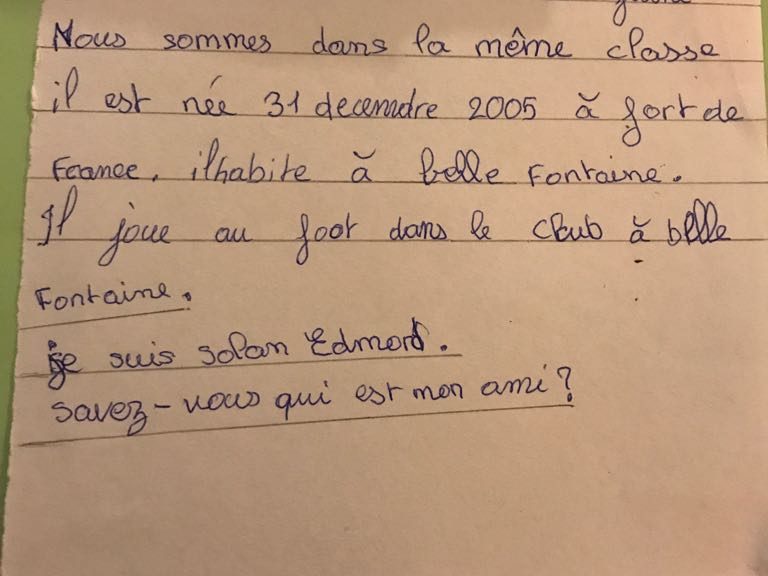 Nous sommes dans la même classe
il est née 31 decemdre 2005 à fort de
France. ilhabite à belle Fontaine.
Il joue au foot dans le club à belle
Fontaine.
je suis solan Edmond.
savez-vous qui est mon ami?